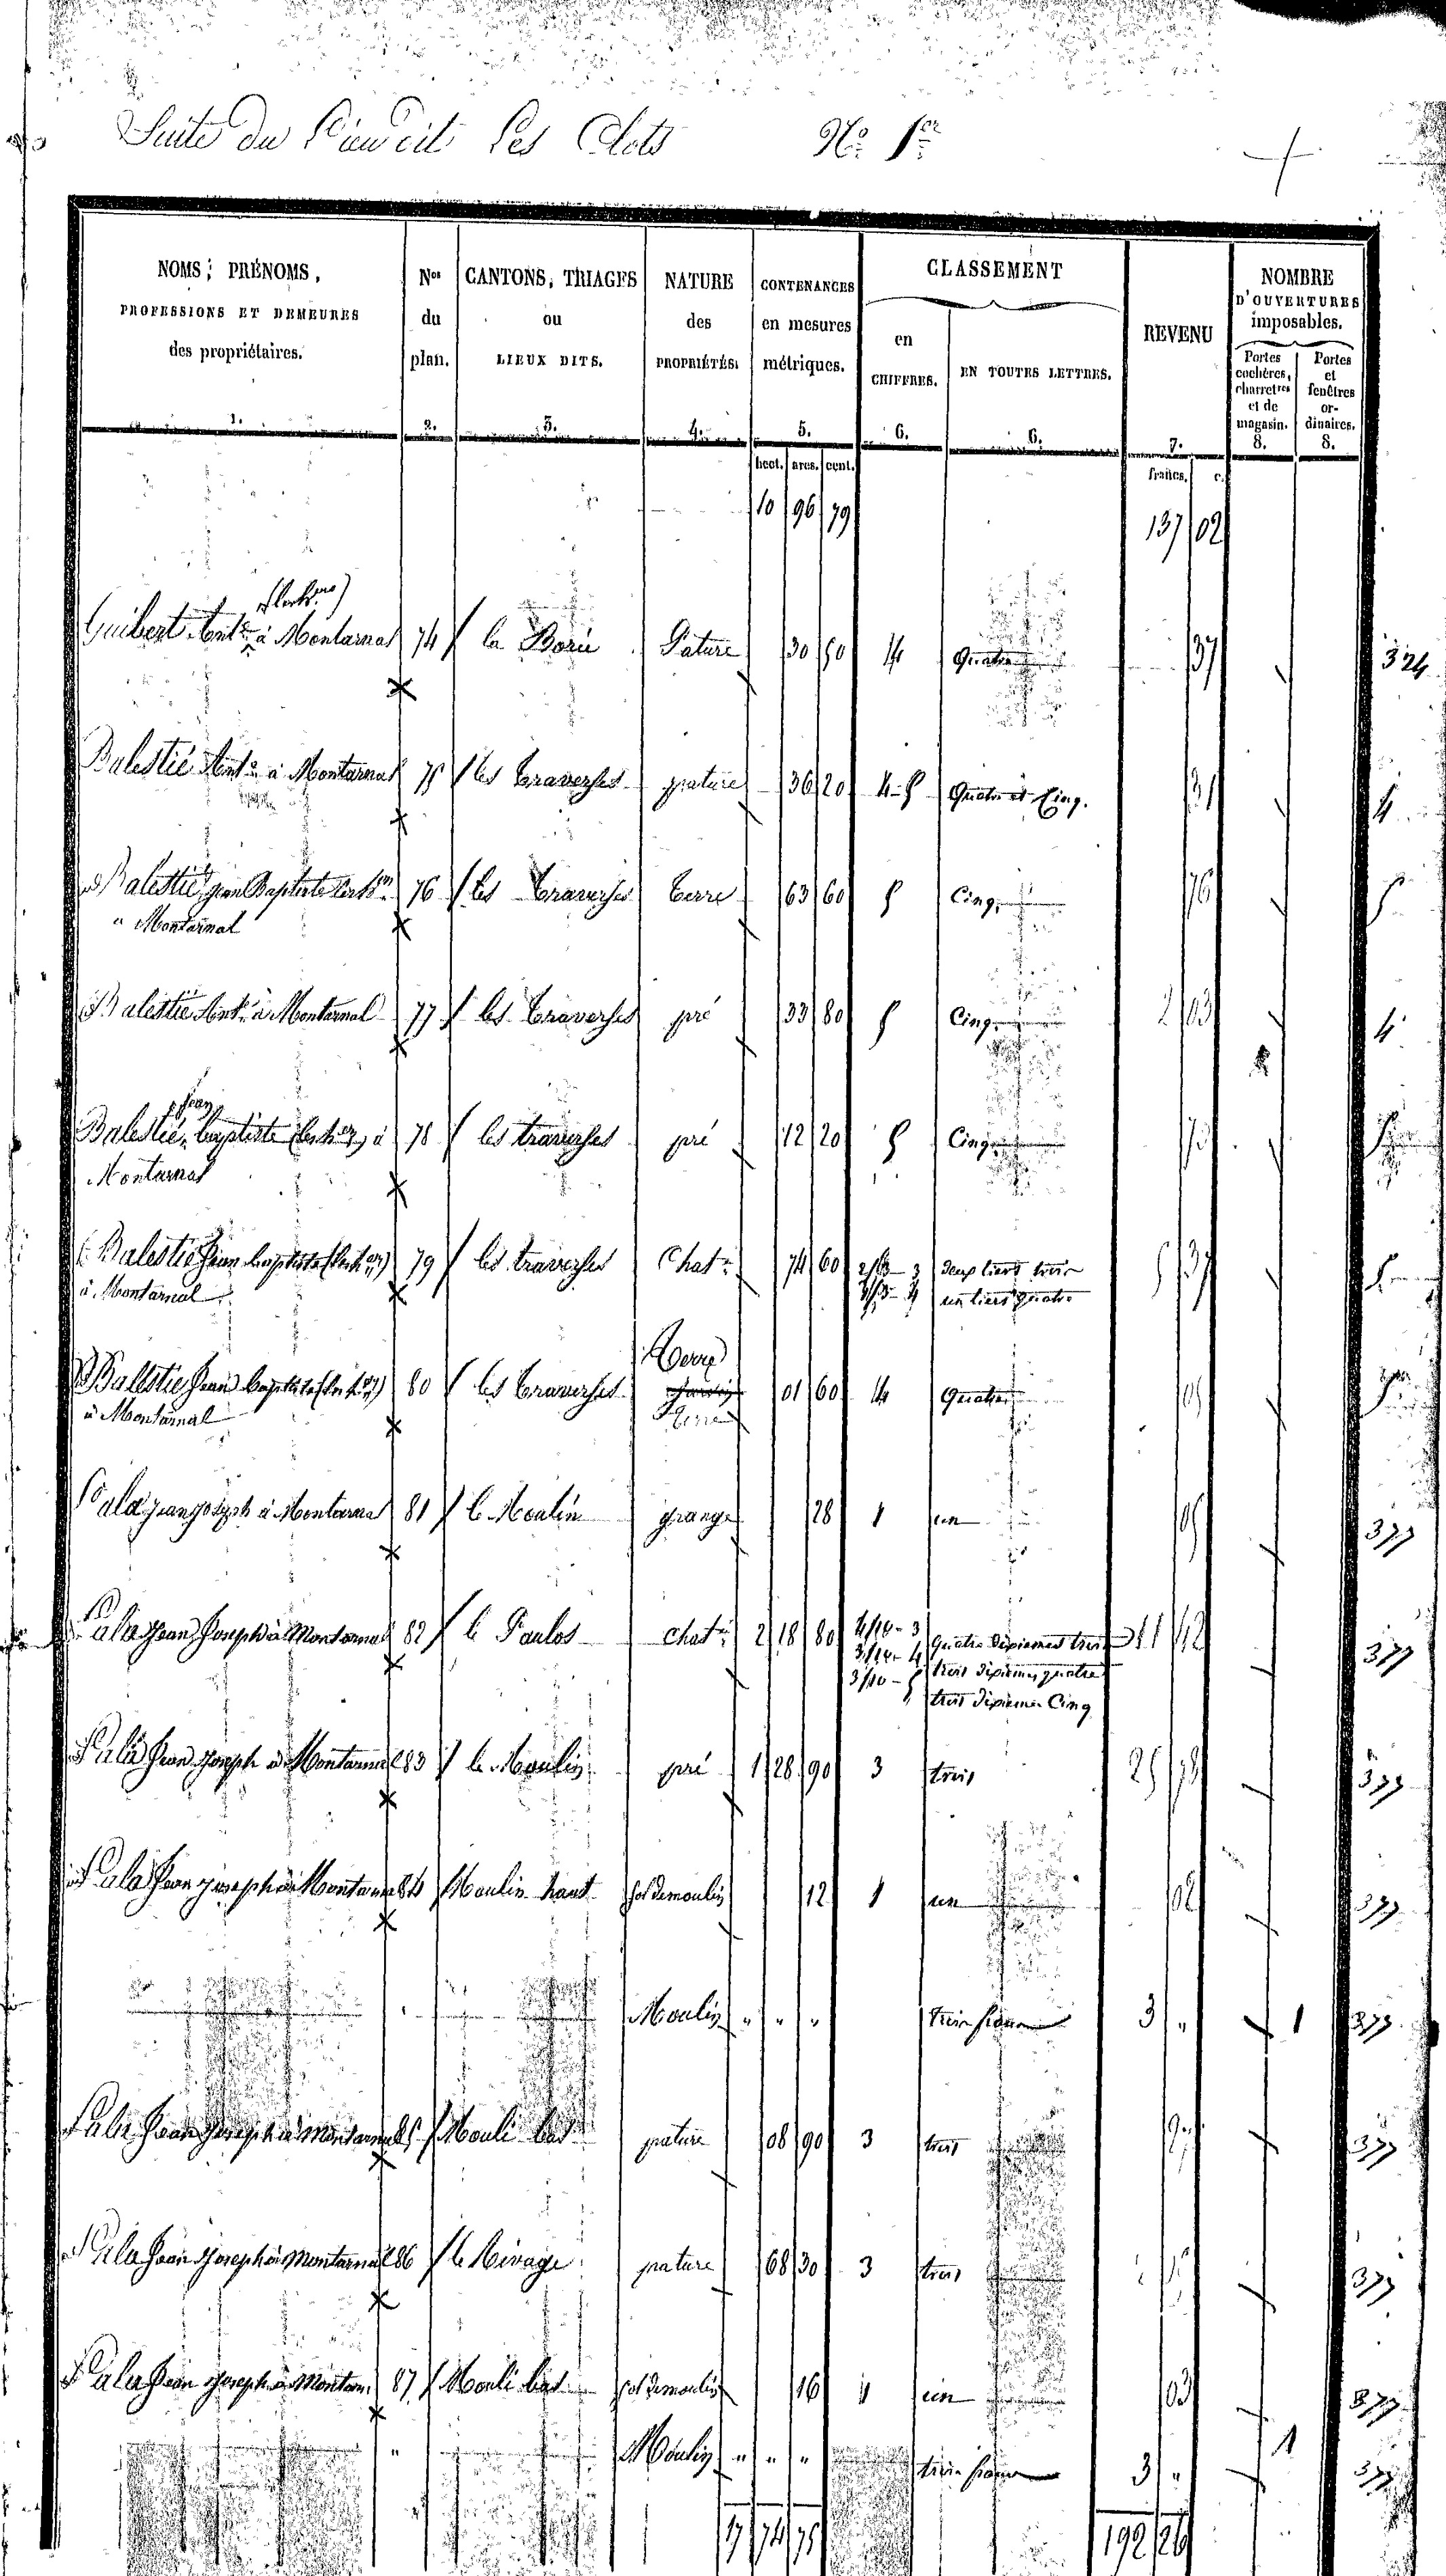 Suite du Lieu dit Les Clots No. 1er
NOMS, PRÉNOMS, PROFESSIONS ET DEMEURES des propriétaires. 1.
Nos du plan. 2.
CANTONS, TRIAGES ou LIEUX DITS. 3.
NATURE des PROPRIÉTÉS. 4.
CONTENANCES en mesures métriques. 5.
CLASSEMENT
en CHIFFRES. 6.
EN TOUTES LETTRES. 6.
REVENU 7.
NOMBRE D'OUVERTURES imposables.
Portes cochères, charretres et de magasin. 8.
Portes et fenêtres ordinaires. 8.
hect. ares. cent. francs. c.
10 96 79 137 02
Guibert Ante à Montarnal 74 la Borie Pature 30 50 4 Quatre 37 324
Balestié Ante à Montarnal 75 les traverses pature 36 20 4-5 Quatre et Cinq. 31 4
Balestié jean Baptiste 76 les traverses terre 63 60 5 Cinq 76 5
à Montarnal
Balestié Ante à Montarnal 77 les traverses pré 33 80 5 Cinq 2 03 4
jean
Balestié baptiste à 78 les traverses pré 12 20 5 Cinq 73
Montarnal
Balestié jean baptiste 79 les traverses Chatre 74 60 2/3-3 deux tiers trois 5 37
à Montarnal 1/3-4 un tiers quatre
Terre
Balestié jean baptiste 80 les traverses terre 01 60 4 Quatre 05
à Montarnal
Pala jean joseph à Montarnal 81 le Moulin grange 28 1 un 05 377
Pala jean joseph à Montarnal 82 le Paulos chatre 2 18 80 4/10-3 Quatre dixiemes trois 11 12 377
3/10-4 trois dixiemes quatre
3/10-5 trois dixiemes Cinq
Pala jean joseph à Montarnal 83 le Moulin pré 1 28 90 3 trois 25 78 377
Pala jean joseph à Montarnal 84 Moulin haut sol de moulin 12 1 un 02 377
Moulin " " " trois francs 3 " 1 377
Pala jean joseph à Montarnal 85 Mouli bas pature 08 90 3 trois 377
Pala jean joseph à Montarnal 86 le Rivage pature 68 30 3 trois 377
Pala jean joseph à Montarn. 87 Mouli bas sol de moulin 16 1 un 03 377
" Moulin " " " trois francs 3 " 1 377
17 74 75 192 26